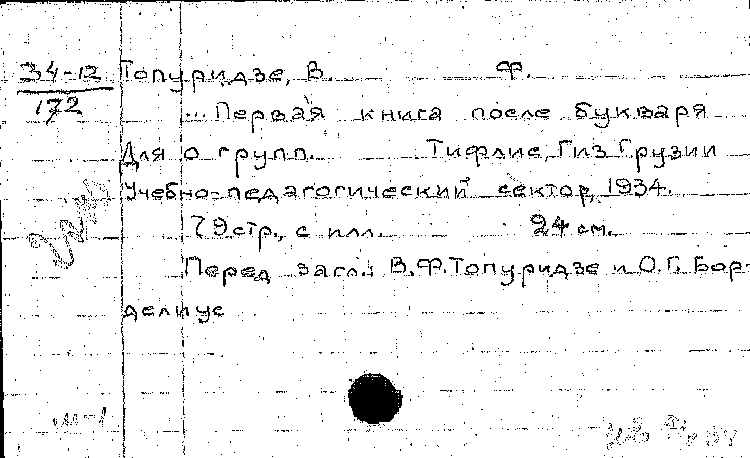 34-12 Топуридзе, В. Ф.
172
...Первая книга после букваря
Для о групп. Тифлис, Гиз Грузии
Учебно-педагогический сектор, 1934.
79 стр., с илл. 24 см.
Перед загл.: В.Ф.Топуридзе и О.Г. Бор-
делиус